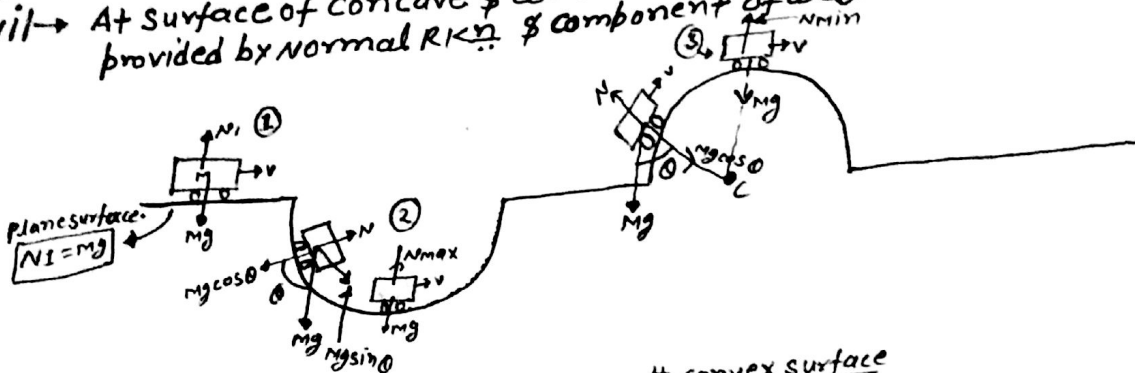 vil→ At surface of concave $
provided by Normal RKn $ component of
N1 ①
M →v
plane surface.
N1 = Mg
Mg
②
N
Mgcosθ
θ
Mg
Mgsinθ
Nmax
→v
Mg
N
v
Mgcosθ
θ
Mg
C
Nmin
→v
Mg
convex surface